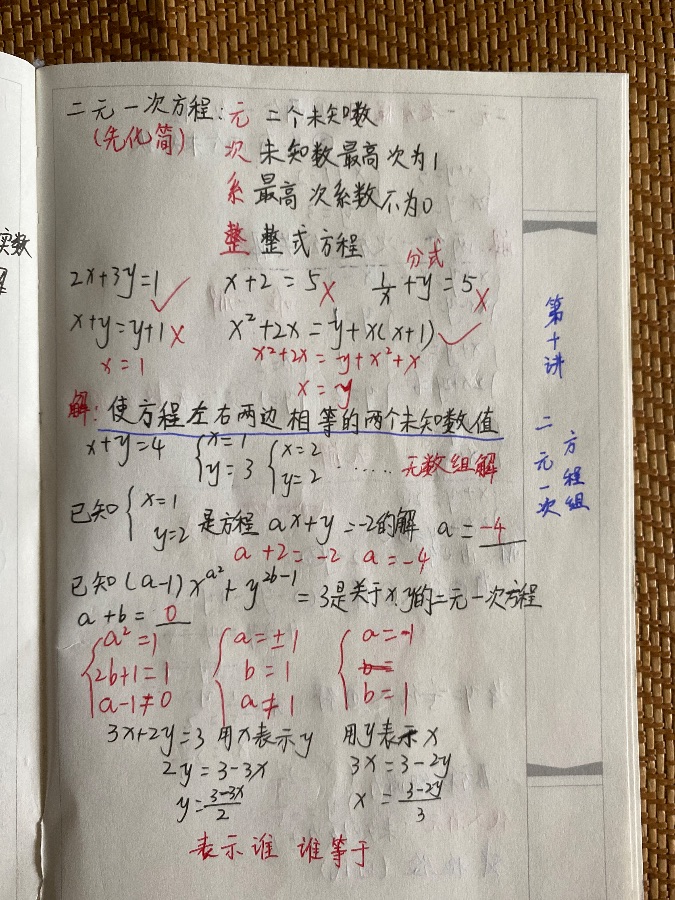 二元一次方程：元 二个未知数
（先化简）
次 未知数最高次为1
系 最高次系数不为0
整 整式方程
分式
2x+3y=1 ✓ x+2=5 X 1/x+y=5 X
x+y=y+1 X x²+2x=y+x(x+1) ✓
x=1 x²+2x=y+x²+x
x=y
解：使方程左右两边相等的两个未知数值
x+y=4 { x=1 y=3 { x=2 y=2 ······ 无数组解
已知 { x=1 y=2 是方程 ax+y=-2的解 a=-4
a+2=-2 a=-4
已知(a-1)x^a²+y^2b-1=3是关于x.y的二元一次方程
a+b=0
{ a²=1 { a=±1 { a=-1
2b+1=1 b=1 b=
a-1≠0 a≠1 b=1
3x+2y=3 用x表示y 用y表示x
2y=3-3x 3x=3-2y
y=3-3x/2 x=3-2y/3
表示谁 谁等于
第十讲 二元一次方程组
实数